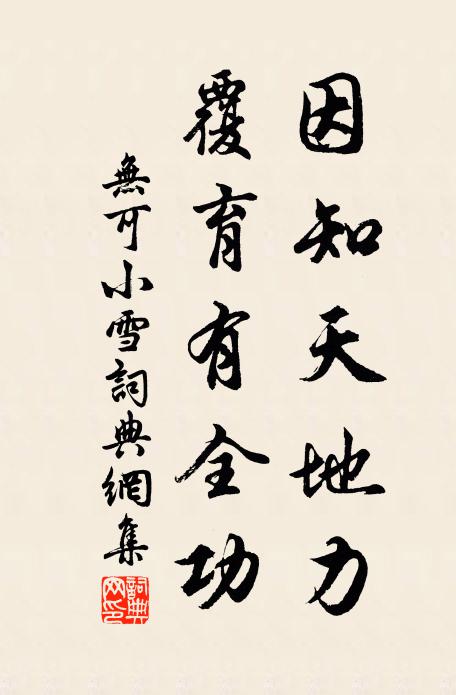 因知天地力
覆育有全功
無可小雪詞典網集
詞典网印